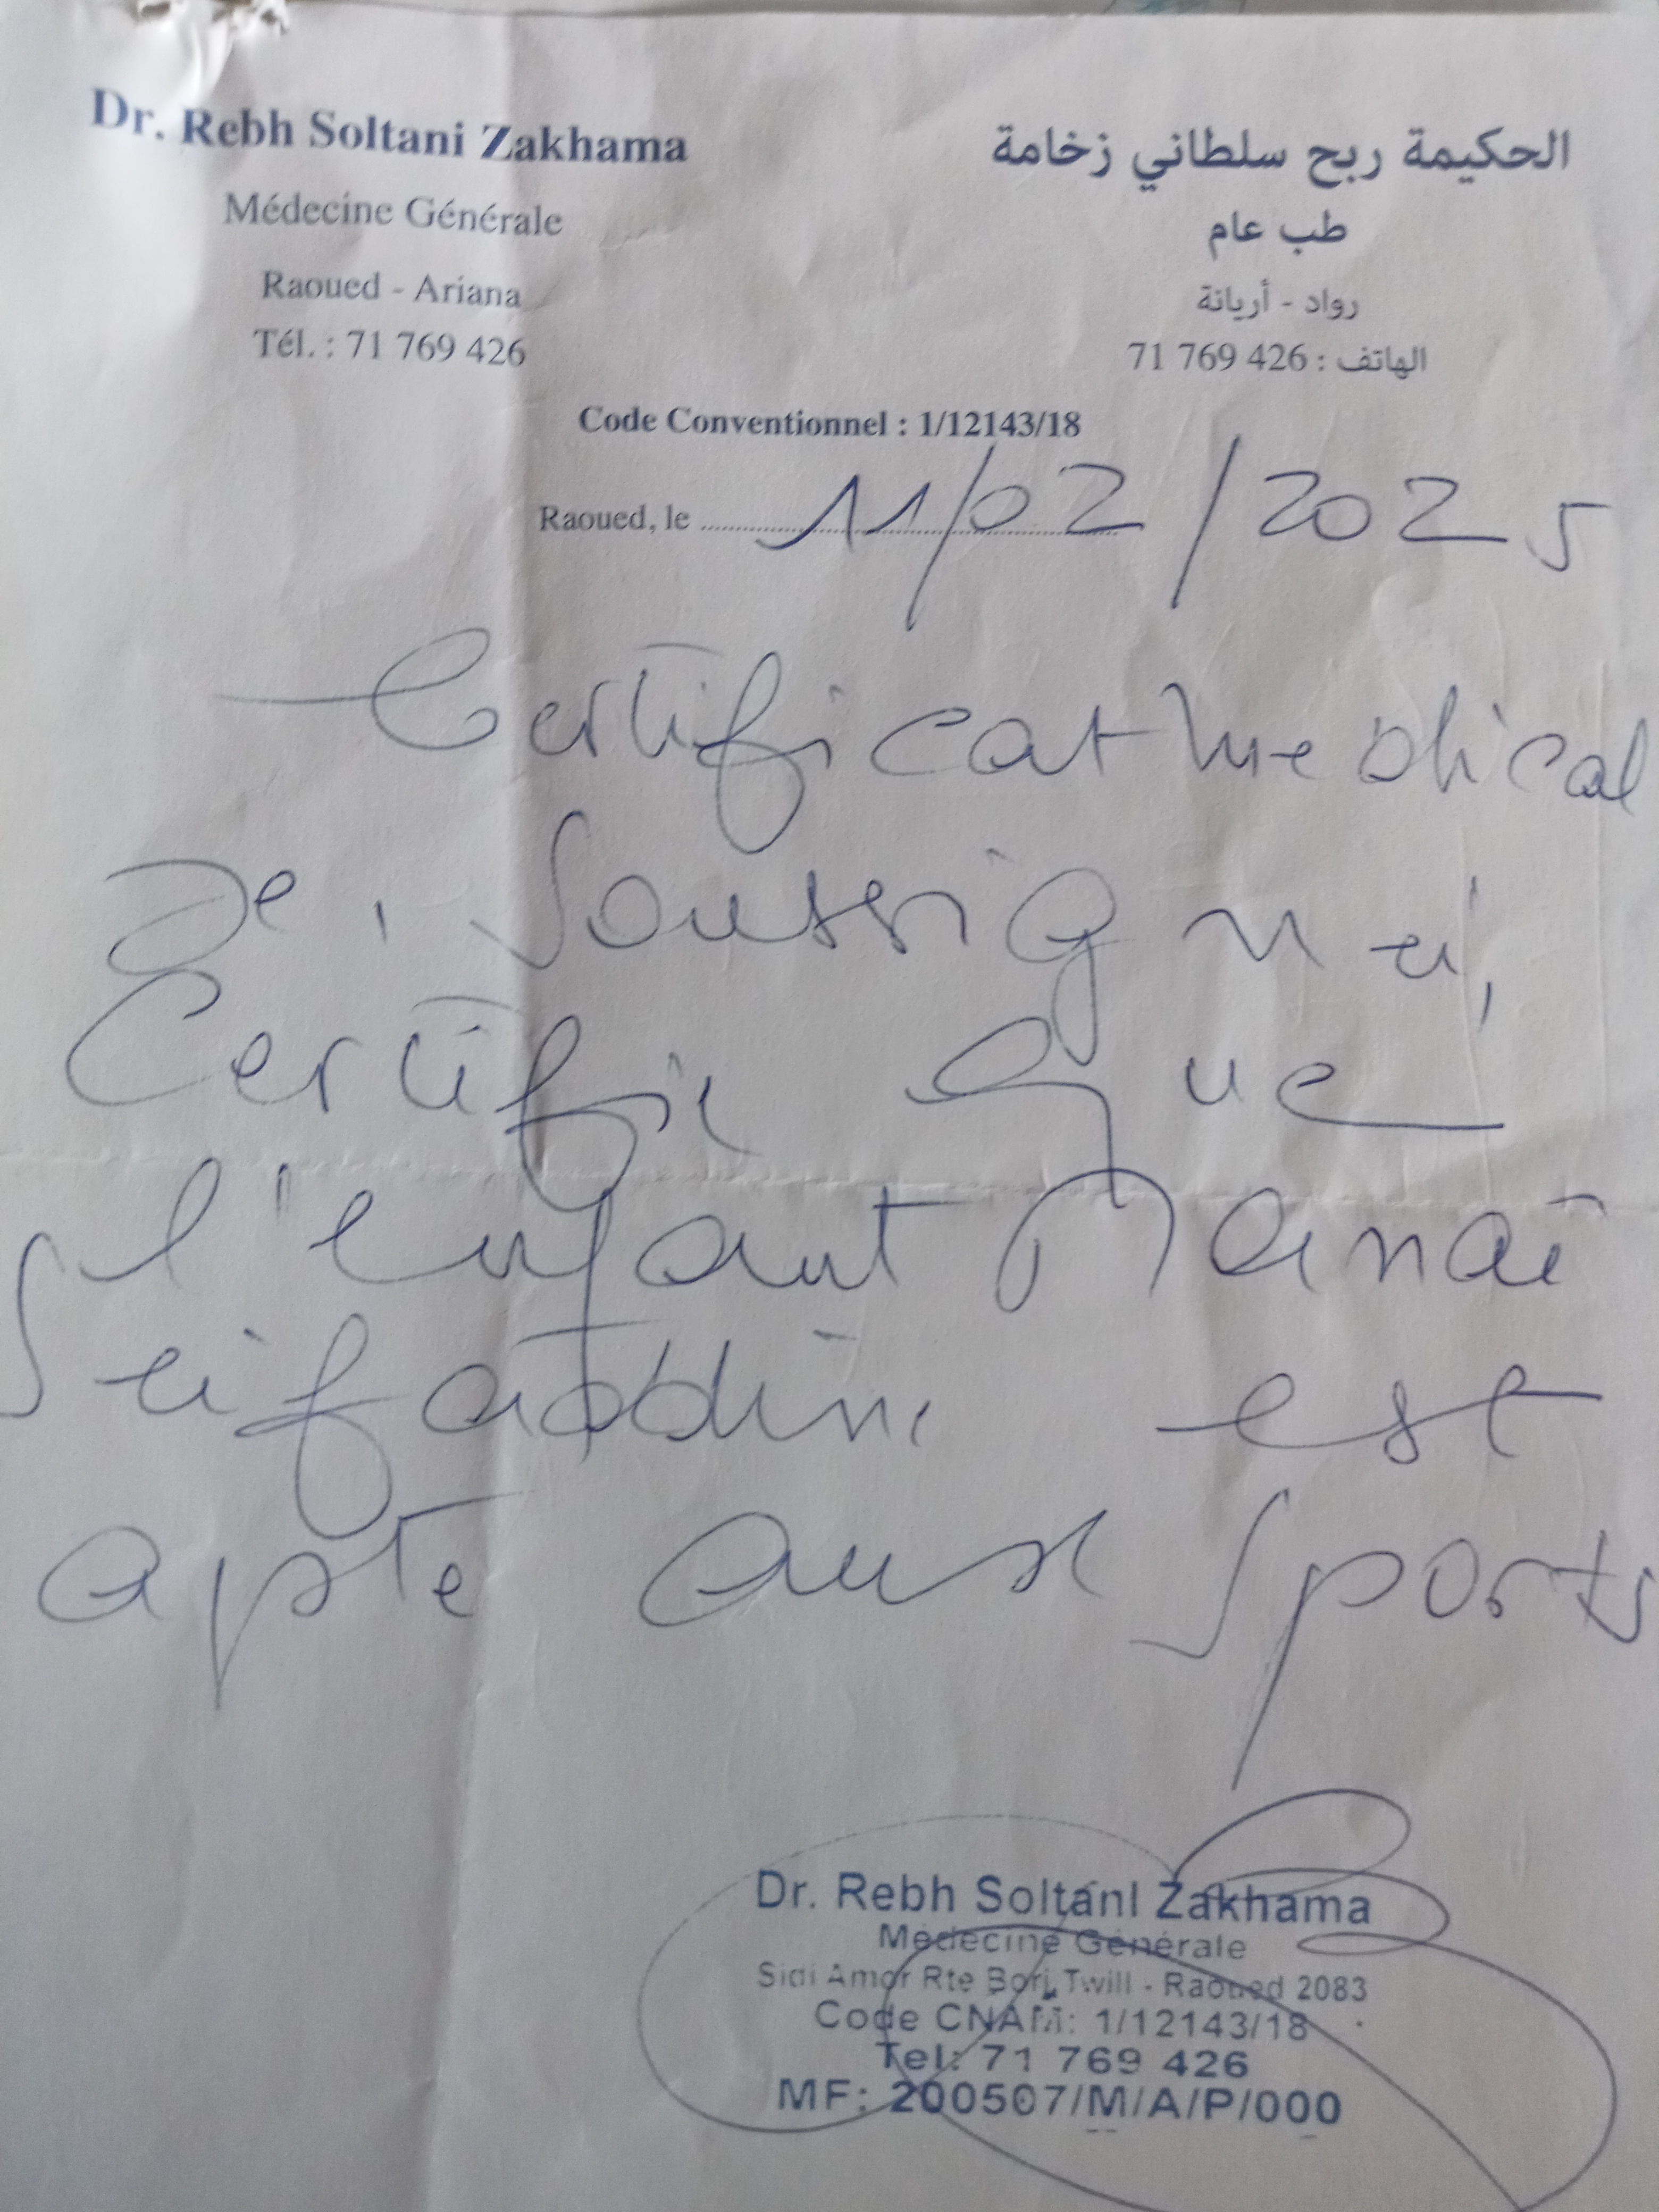 Dr. Rebh Soltani Zakhama
Médecine Générale
Raoued - Ariana
Tél. : 71 769 426
الحكيمة ربح سلطاني زخامة
طب عام
رواد - أريانة
الهاتف : 71 769 426
Code Conventionnel : 1/12143/18
Raoued, le 11/02/2025
Certificat medical
Je, soussigné,
Certifie que
l'enfant Manaï
Seifaddine est
apte aux sports
Dr. Rebh Soltani Zakhama
Médecine Générale
Sidi Amor Rte Borj Twill - Raoued 2083
Code CNAM: 1/12143/18
Tel: 71 769 426
MF: 200507/M/A/P/000